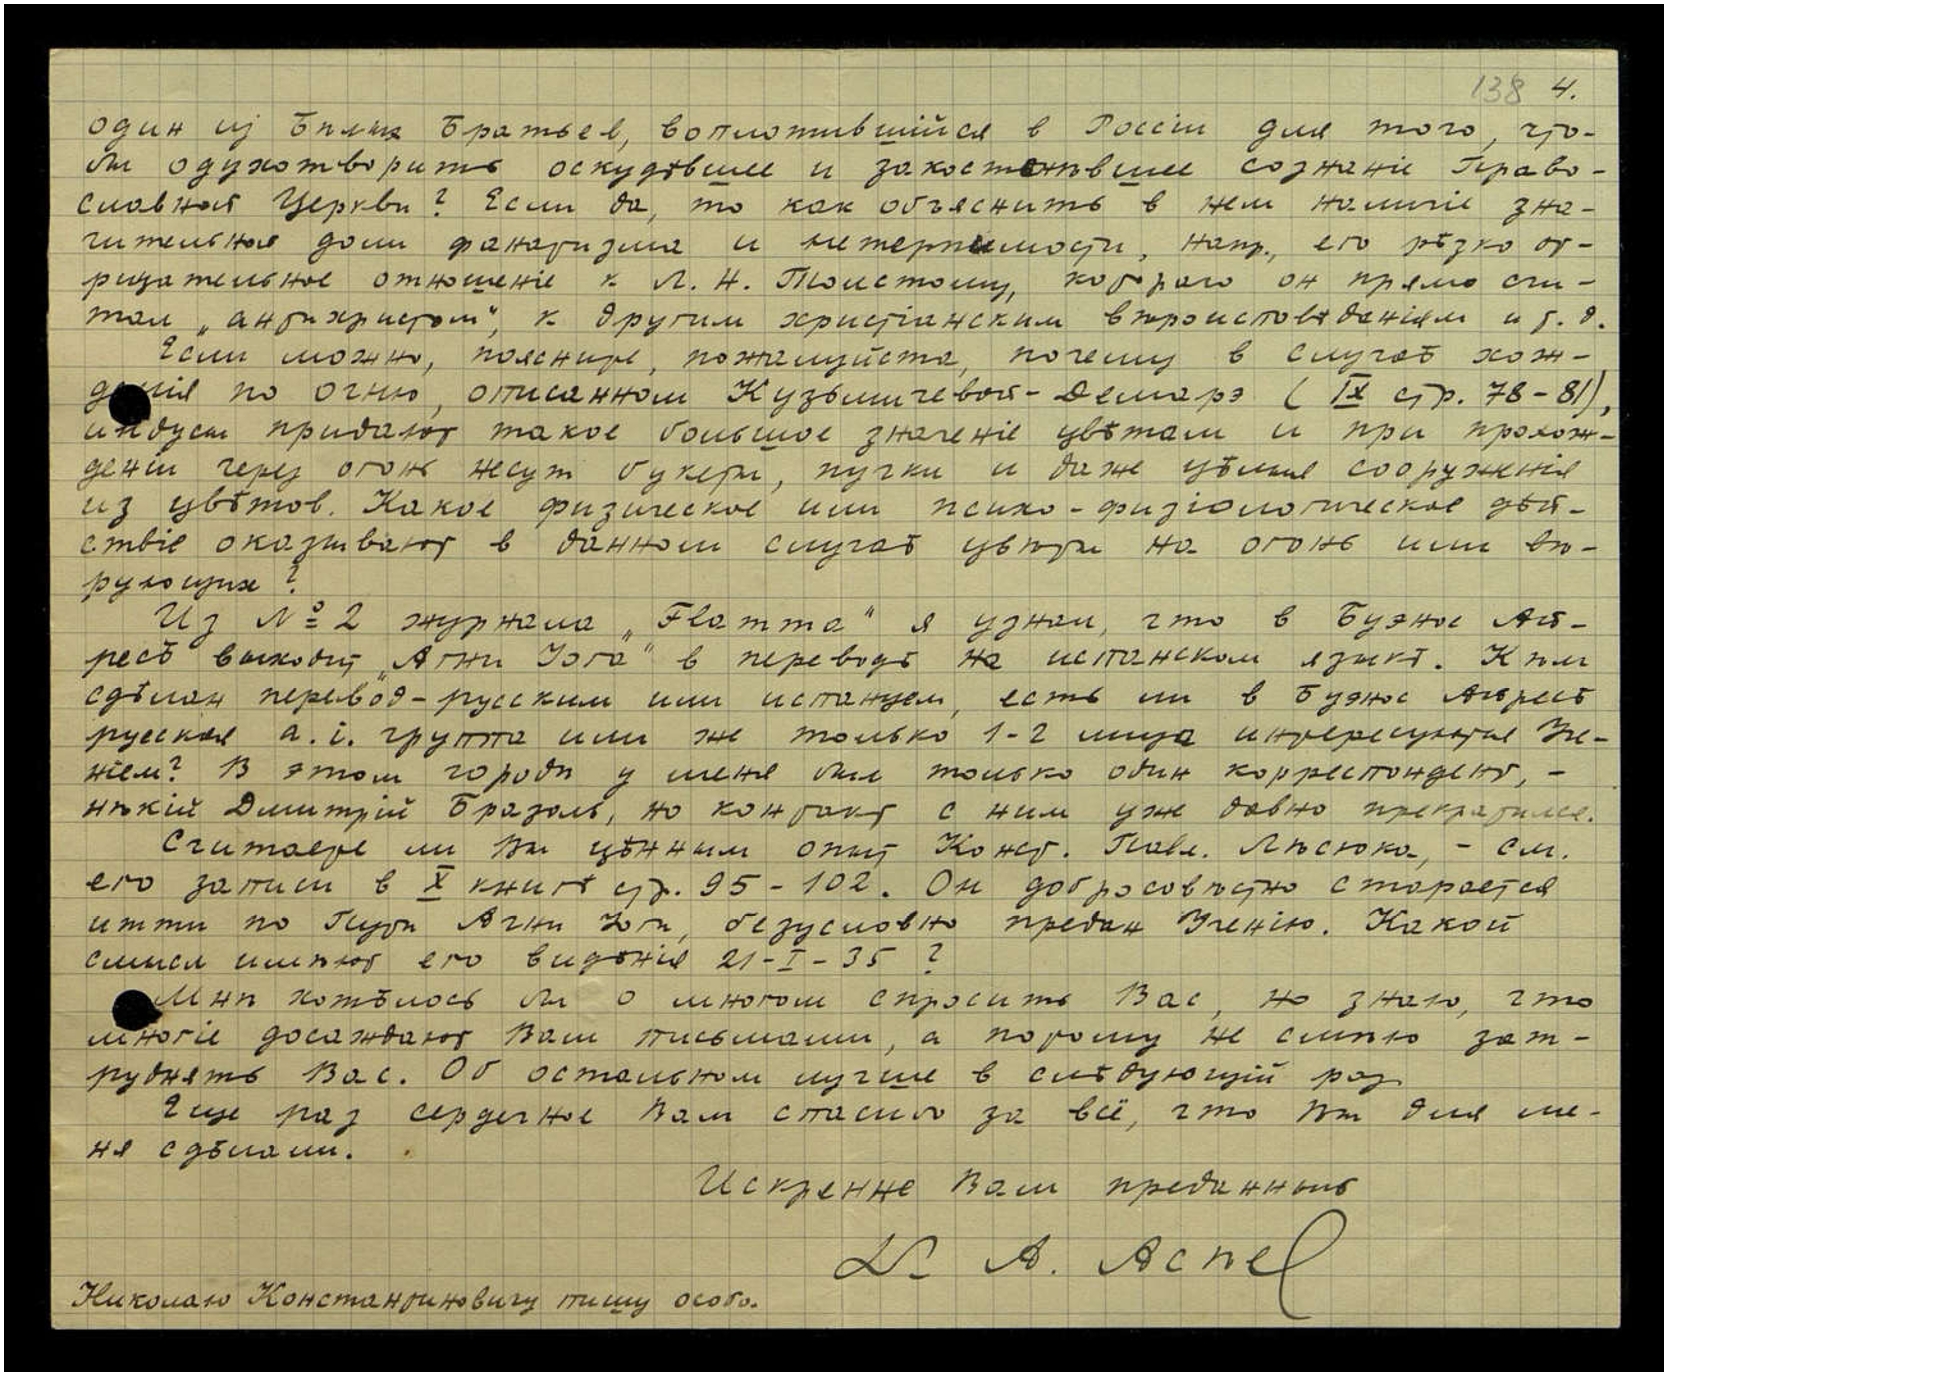 138 4.
один из Бѣлых Братьев, воплотившійся в Россіи для того, что-
бы одухотворить оскудѣвшее и закостенѣвшее сознаніе Право-
славной Церкви? Если да, то как объяснить в нем наличіе зна-
чительной доли фанатизма и нетерпимости, напр., его рѣзко от-
рицательное отношеніе к Л. Н. Толстому, котораго он прямо счи-
тал „антихристом", к другим христіанским вѣроисповѣданіям и т. д.
Если можно, поясните, пожалуйста, почему в случаѣ хож-
денія по огню, описанном Кузьмичевой-Демарэ (IX стр. 78-81),
индусы придают такое большое значеніе цвѣтам и при прохож-
деніи через огонь несут букеты, пучки и даже цѣлыя сооруженія
из цвѣтов. Какое физическое или психо-физіологическое дѣй-
ствіе оказывают в данном случаѣ цвѣты на огонь или вѣ-
рующих?
Из № 2 журнала „Flamma" я узнал, что в Буэнос Ай-
ресѣ выходит „Агни Іога" в переводѣ на испанском языкѣ. Кѣм
сдѣлан перевод - русским или испанцем, есть ли в Буэнос Айресѣ
русская а. і. группа или же только 1-2 лица интересуются Уче-
ніем? В этом городѣ у меня был только один корреспондент, -
нѣкій Дмитрій Бразоль, но контакт с ним уже давно прекратился.
Считаете ли Вы цѣнным опыт Конст. Павл. Лѣсюка, - см.
его записи в X книгѣ стр. 95-102. Он добросовѣстно старается
итти по Пути Агни Іоги, безусловно предан Ученію. Какой
смысл имѣют его видѣнія 21-I-35?
Мнѣ хотѣлось бы о многом спросить Вас, но знаю, что
многіе досаждают Вам письмами, а потому не смѣю зат-
руднять Вас. Об остальном лучше в слѣдующій раз.
Еще раз сердечное Вам спасибо за всё, что Вы для ме-
ня сдѣлали.
Искренне Вам преданный
Dr A. Аспе
Николаю Константиновичу пишу особо.